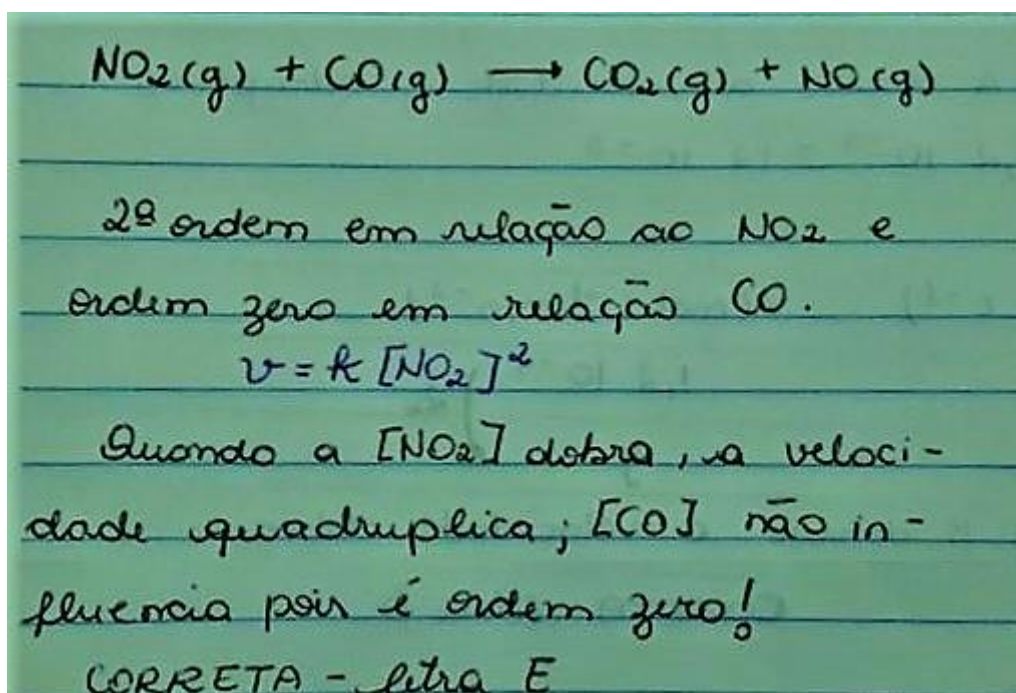 NO₂(g) + CO(g) → CO₂(g) + NO(g)
2ª ordem em relação ao NO₂ e
ordem zero em relação CO.
v = k [NO₂]²
Quando a [NO₂] dobra, a veloci-
dade quadruplica; [CO] não in-
fluencia pois é ordem zero!
CORRETA - letra E